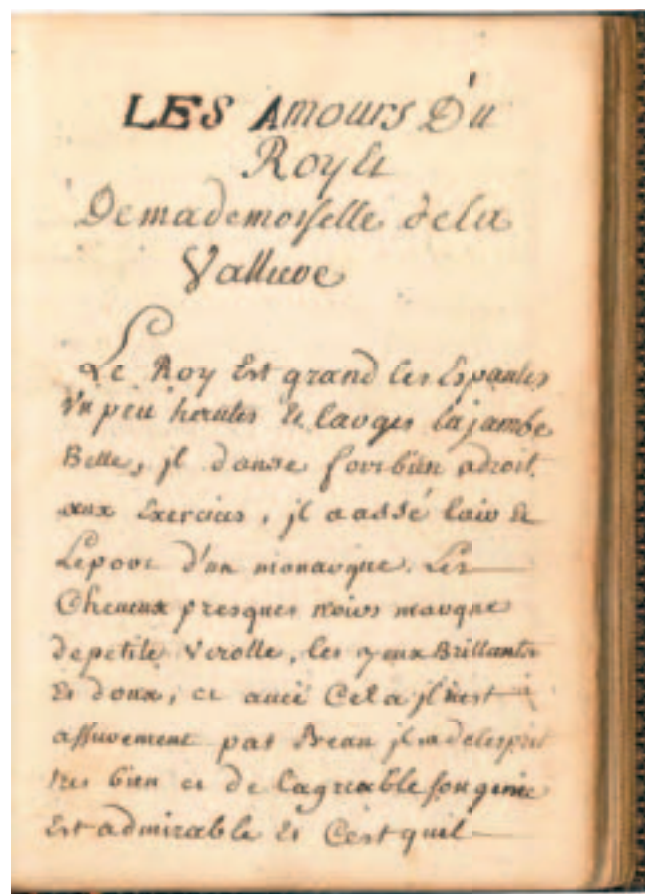 LES Amours Du
Roy Et
De mademoiselle de la
Valliere
Le Roy Est grand les Espaules
Vn peu hautes Et larges la jambe
Belle, jl danse fort bien adroit
aux Exercices, jl a assé lair Et
Le port d'un monarque. Les
Cheueux presques noirs marque
de petite verolle, les yeux Brillants
Et doux, et auec Cela jl n'est
assurement pas Beau jl a de lesprit
tres bien et de lagreable son genie
Est admirable Et C'est quil